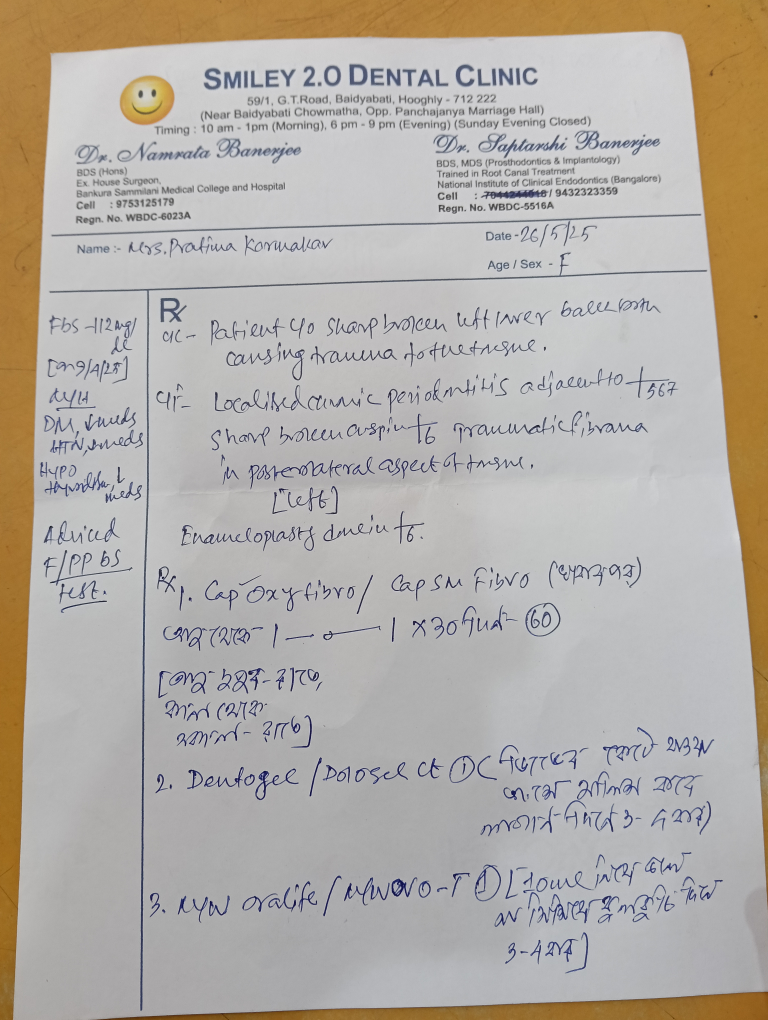 SMILEY 2.0 DENTAL CLINIC
59/1, G.T.Road, Baidyabati, Hooghly - 712 222
(Near Baidyabati Chowmatha, Opp. Panchajanya Marriage Hall)
Timing : 10 am - 1pm (Morning), 6 pm - 9 pm (Evening) (Sunday Evening Closed)
Dr. Namrata Banerjee
BDS (Hons)
Ex. House Surgeon,
Bankura Sammilani Medical College and Hospital
Cell : 9753125179
Regn. No. WBDC-6023A
Dr. Saptarshi Banerjee
BDS, MDS (Prosthodontics & Implantology)
Trained in Root Canal Treatment
National Institute of Clinical Endodontics (Bangalore)
Cell : / 9432323359
Regn. No. WBDC-5516A
Name :- Mrs. Pratima Karmakar
Date - 26/5/25
Age / Sex - F
Fbs - 112mg/
dl
[on 9/4/25]
M/H
DM, meds
HTN, meds
HYPO
meds
Adviced
F/PP bS
test.
Rx
C/C - Patient c/o sharp broken left lower back tooth
causing trauma to the tongue.
Localised chronic periodontitis adjacent to 567
Sharp broken cusp in 6 Traumatic fibroma
in posterolateral aspect of tongue.
[left]
Enameloplasty done in 6.
Rx 1. Cap Oxyfibro / Cap SM Fibro (খাবার পর)
আজ থেকে 1 — o — 1 x 30 দিন - 60
[আজ দুপুর - রাতে,
কাল থেকে
সকাল - রাতে]
2. Dentogel / Dologel CT 1 (
মালিশ করে
লাগান দিনে 3-4 বার)
3. Oralife / 1 [10ml নিয়ে জলে
মিশিয়ে কুলকুচি দিনে
3-4 বার]